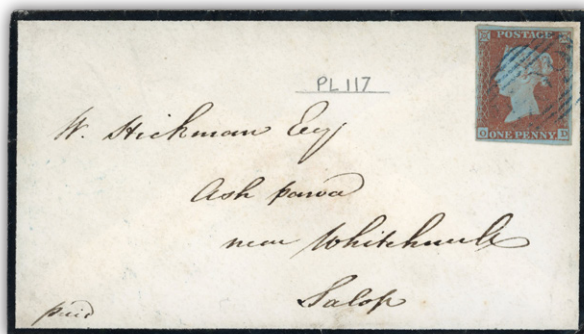 POSTAGE
ONE PENNY
PL 117
W. Hickman Esq
Ash parva
near Whitchurch
Salop
paid